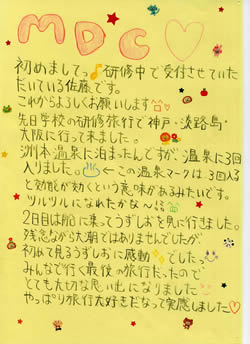 MDC♡
初めましてっ♪研修中で受付させていた
だいている佐藤です。
これからよろしくお願いします
先日学校の研修旅行で神戸・淡路島・
大阪に行って来ました。
洲本温泉に泊まったんですが、温泉に3回
入りました。♨←この温泉マークは3回入る
と効能が効くという意味があるみたいです。
ツルツルになれたかな〜
2日目は船に乗ってうずしおを見に行きました。
残念ながら大潮ではありませんでしたが、
初めて見るうずしおに感動でした。
みんなで行く最後の旅行だったので
とても大切な思い出になりました
やっぱり旅行大好きだなって実感しました♡